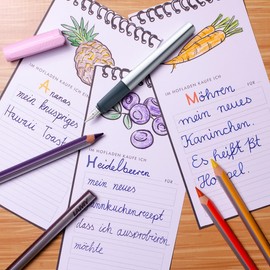 IM HOFLADEN KAUFE ICH
Ananas
FÜR
mein knuspriges
Hawaii Toast
IM HOFLADEN KAUFE ICH
Heidelbeeren
FÜR
mein neues
annkuchenrezept
dass ich ausprobieren
möchte
IM HOFLADEN KAUFE ICH
Möhren
FÜR
mein neues
Kaninchen.
Es heißt